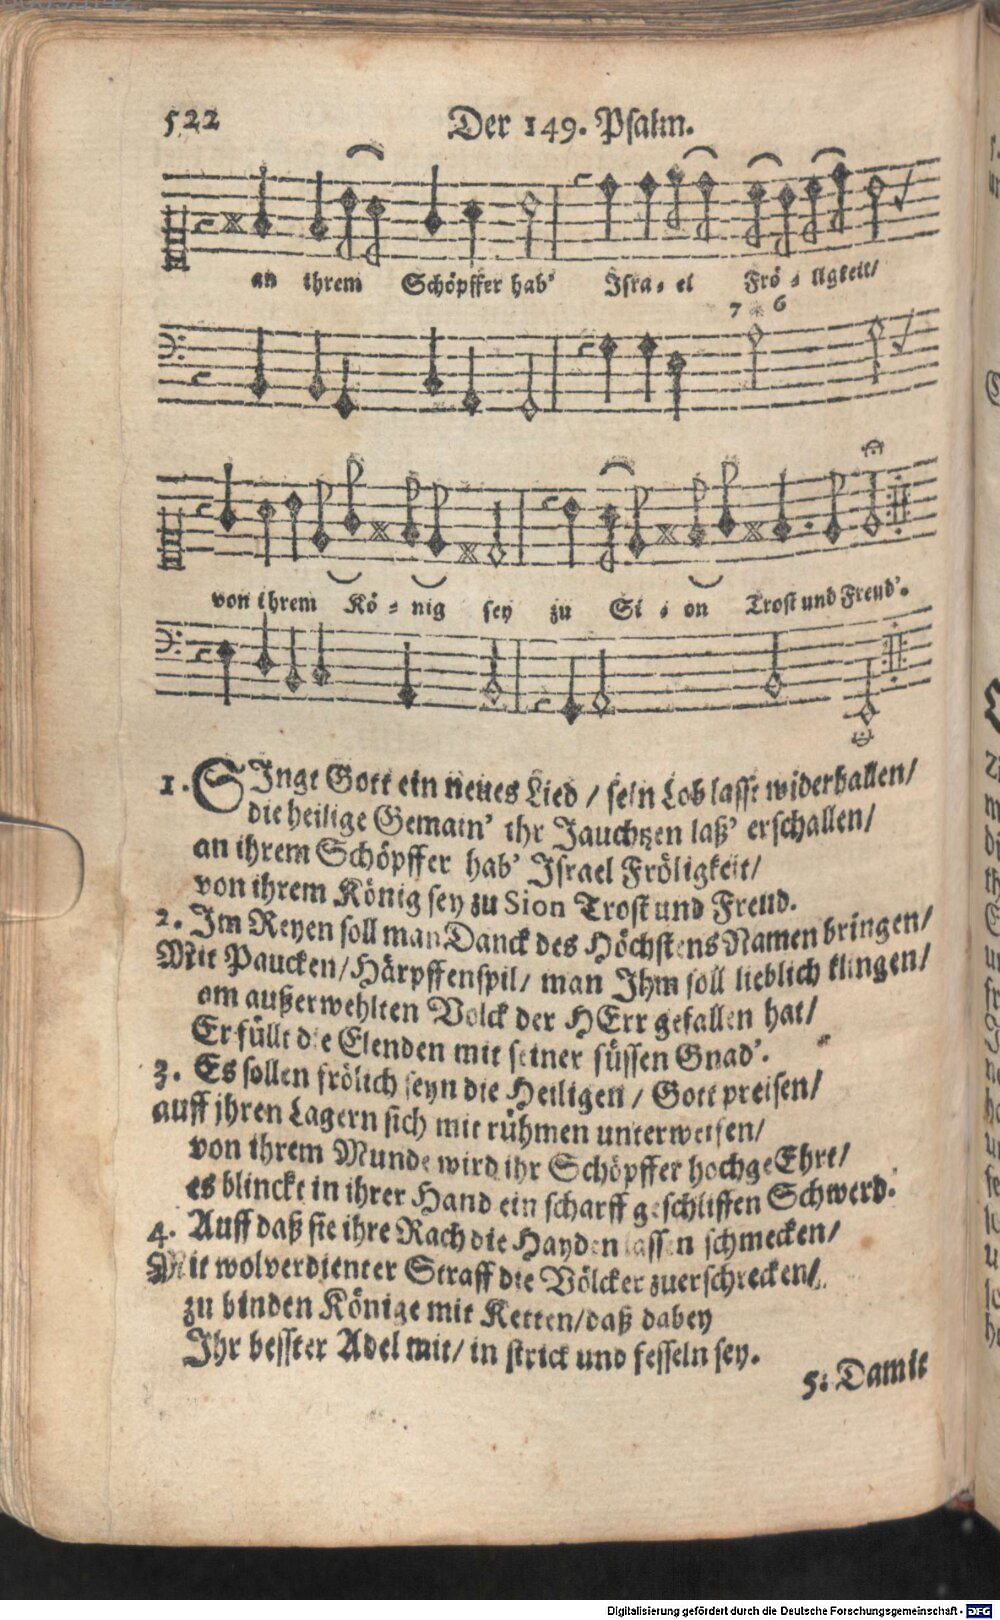 522
Der 149. Psalm.
an ihrem Schöpffer hab' Isra- el Frö- ligkeit/
7 * 6
von ihrem Kö- nig sey zu Si- on Trost und Freud'.
1. SInge Gott ein neues Lied / sein Lob lasse widerhallen/
die heilige Gemain' ihr Jauchtzen laß' erschallen/
an ihrem Schöpffer hab' Israel Fröligkeit/
von ihrem König sey zu Sion Trost und Freud.
2. Im Reyen soll man Danck des Höchstens Namen bringen/
Mit Paucken/Härpffenspil/ man Ihm soll lieblich klingen/
am außerwehlten Volck der HErr gefallen hat/
Er füllt die Elenden mit seiner süssen Gnad'.
3. Es sollen frölich seyn die Heiligen / Gott preisen/
auff jhren Lagern sich mit rühmen unterweisen/
von ihrem Munde wird ihr Schöpffer hochgeEhrt/
es blinckt in ihrer Hand ein scharff geschliffen Schwerd.
4. Auff daß sie ihre Rach die Hayden lassen schmecken/
Mit wolverdienter Straff die Völcker zuerschrecken/
zu binden Könige mit Ketten/daß dabey
Ihr besster Adel mit/ in strick und fesseln sey.
5. Damit
Digitalisierung gefördert durch die Deutsche Forschungsgemeinschaft - DFG